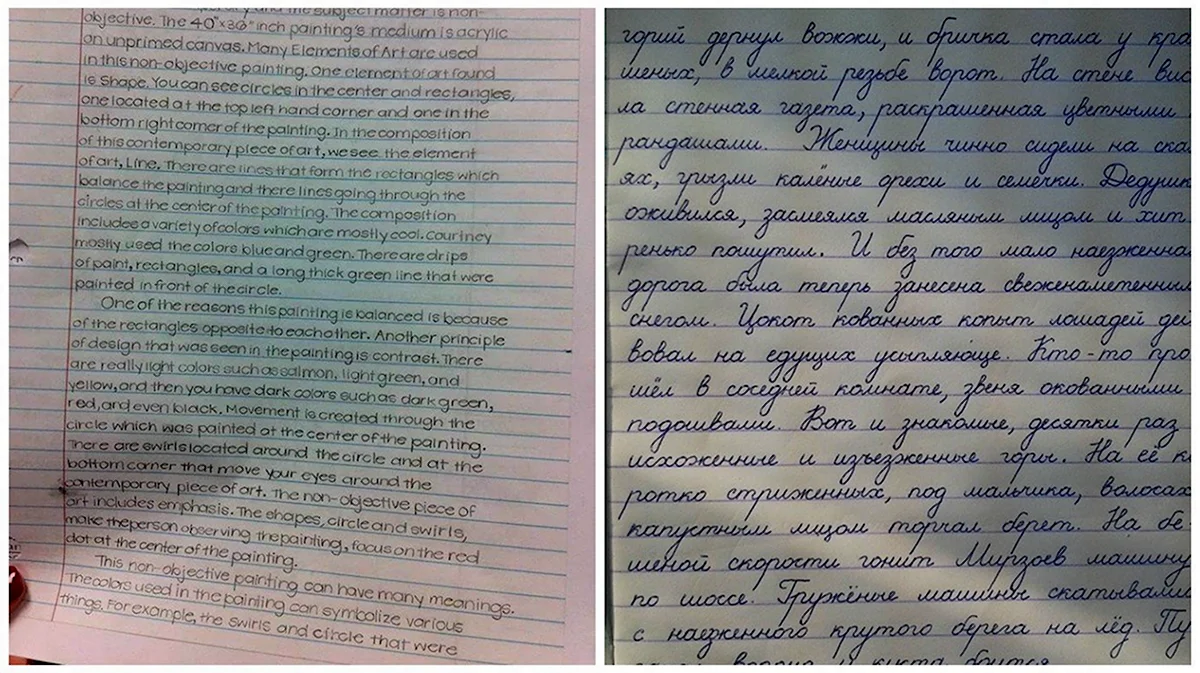 objective. The 40"x36" inch painting's medium is acrylic
on unprimed canvas. Many Elements of Art are used
in this non-objective painting. One element of art found
is Shape. You can see circles in the center and rectangles,
one located at the top left hand corner and one in the
bottom right corner of the painting. In the composition
of this contemporary piece of art, we see the element
of art, Line. There are lines that form the rectangles which
balance the painting and there lines going through the
circles at the center of the painting. The composition
includes a variety of colors which are mostly cool. Courtney
mostly used the colors blue and green. There are drips
of paint, rectangles, and a long thick green line that were
painted in front of the circle.
One of the reasons this painting is balanced is because
of the rectangles opposite to each other. Another principle
of design that was seen in the painting is contrast. There
are really light colors such as salmon, light green, and
yellow, and then you have dark colors such as dark green,
red, and even black. Movement is created through the
circle which was painted at the center of the painting.
There are swirls located around the circle and at the
bottom corner that move your eyes around the
contemporary piece of art. The non-objective piece of
art includes emphasis. The shapes, circle and swirls,
make the person observing the painting, focus on the red
dot at the center of the painting.
This non-objective painting can have many meanings.
The colors used in the painting can symbolize various
things. For example, the swirls and circle that were
горий дернул вожжи, и бричка стала у кра
шеных, в мелкой резьбе ворот. На стене вис
ла стенная газета, раскрашенная цветными
рандашами. Женщины чинно сидели на ска
ях, грызли калёные орехи и семечки. Дедушк
оживился, засмеялся масляным лицом и хит
ренько пошутил. И без того мало наезженна
дорога была теперь занесена свеженаметенным
снегом. Цокот кованных копыт лошадей дей
вовал на едущих усыпляюще. Кто-то про
шёл в соседней комнате, звеня окованными
подошвами. Вот и знакомые, десятки раз
исхоженные и изъезженные горы. На её к
ротко стриженных, под мальчика, волосах
капустным лицом торчал берет. На бе-
шеной скорости гонит Мирзоев машину
по шоссе. Гружёные машины скатывали
с наезженного крутого берега на лёд. Пу